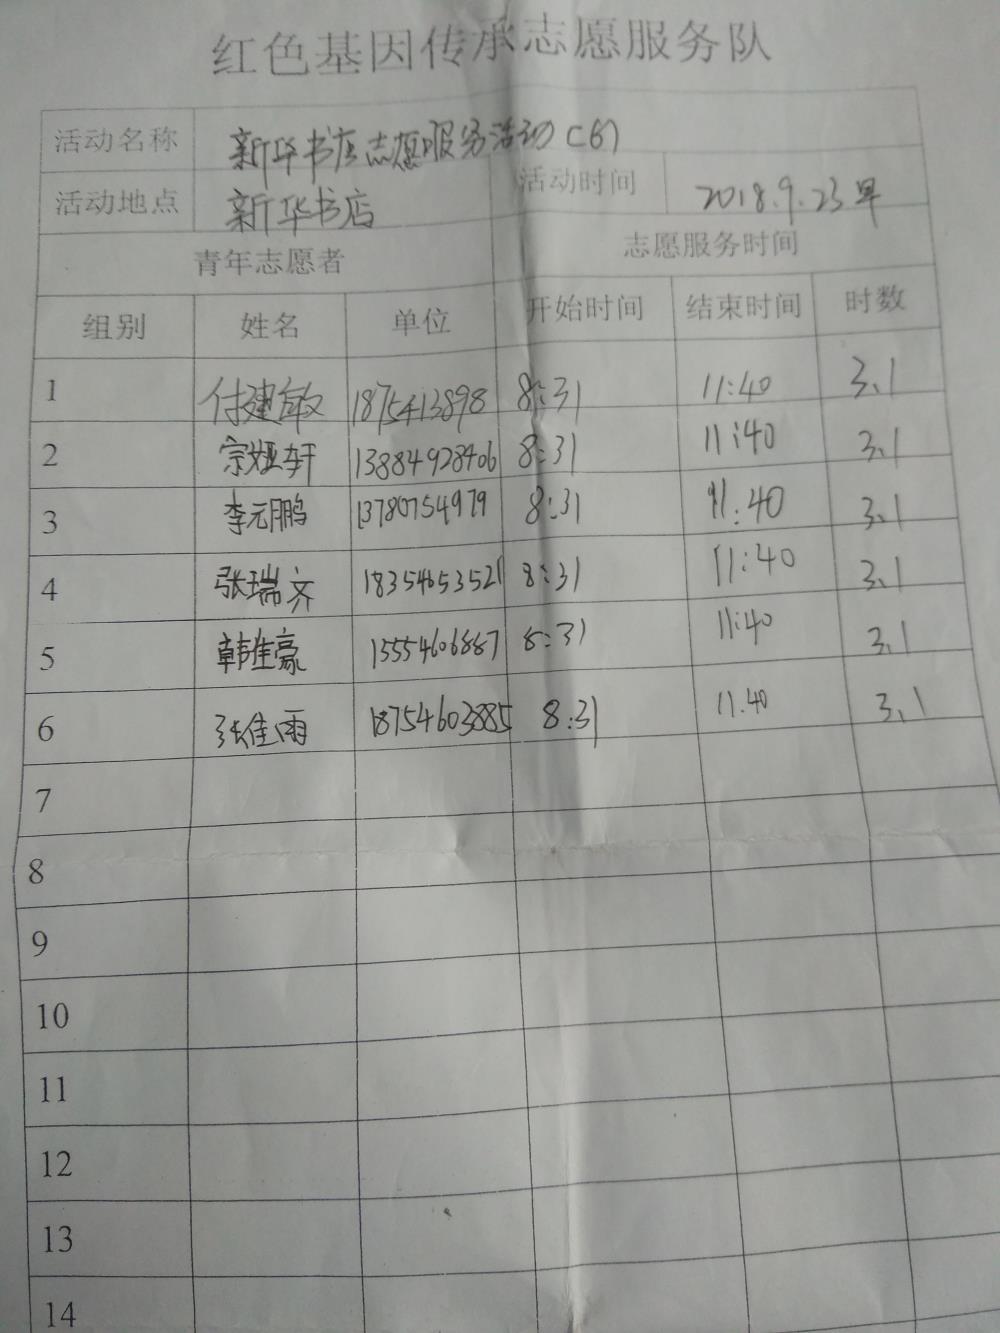 红色基因传承志愿服务队
活动名称 新华书店志愿服务活动(6)
活动地点 新华书店 活动时间 2018.9.23早
青年志愿者 志愿服务时间
组别 姓名 单位 开始时间 结束时间 时数
1 付建敏 1875413898 8:31 11:40 3.1
2 宗娅轩 13884928406 8:31 11:40 3.1
3 李元鹏 13780754979 8:31 11:40 3.1
4 张瑞齐 18354653521 8:31 11:40 3.1
5 韩佳豪 15554606887 8:31 11:40 3.1
6 张佳雨 18754603885 8:31 11.40 3.1
7
8
9
10
11
12
13
14